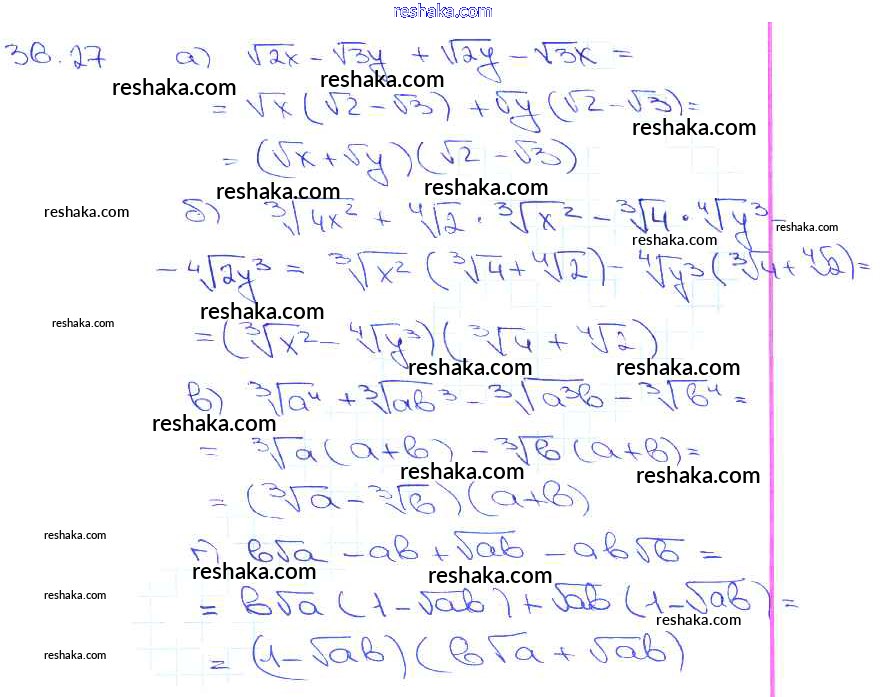 reshaka.com
38.27 а) √2x − √3y + √2y − √3x =
reshaka.com reshaka.com
= √x (√2 − √3) + √y (√2 − √3) =
reshaka.com
= (√x + √y)(√2 − √3)
reshaka.com reshaka.com
reshaka.com
б) ∛4x² + ∜2 · ∛x² − ∛4 · ∜y³ −
reshaka.com reshaka.com
− ∜2y³ = ∛x² (∛4 + ∜2) − ∜y³ (∛4 + ∜2) =
reshaka.com
reshaka.com
= (∛x² − ∜y³)(∛4 + ∜2)
reshaka.com reshaka.com
в) ∛a⁴ + ∛ab³ − ∛a³b − ∛b⁴ =
reshaka.com
= ∛a (a+b) − ∛b (a+b) =
reshaka.com reshaka.com
= (∛a − ∛b)(a+b)
reshaka.com
г) b√a − ab + √ab − ab√b =
reshaka.com reshaka.com
= b√a (1 − √ab) + √ab (1 − √ab) =
reshaka.com
reshaka.com
= (1 − √ab)(b√a + √ab)
reshaka.com